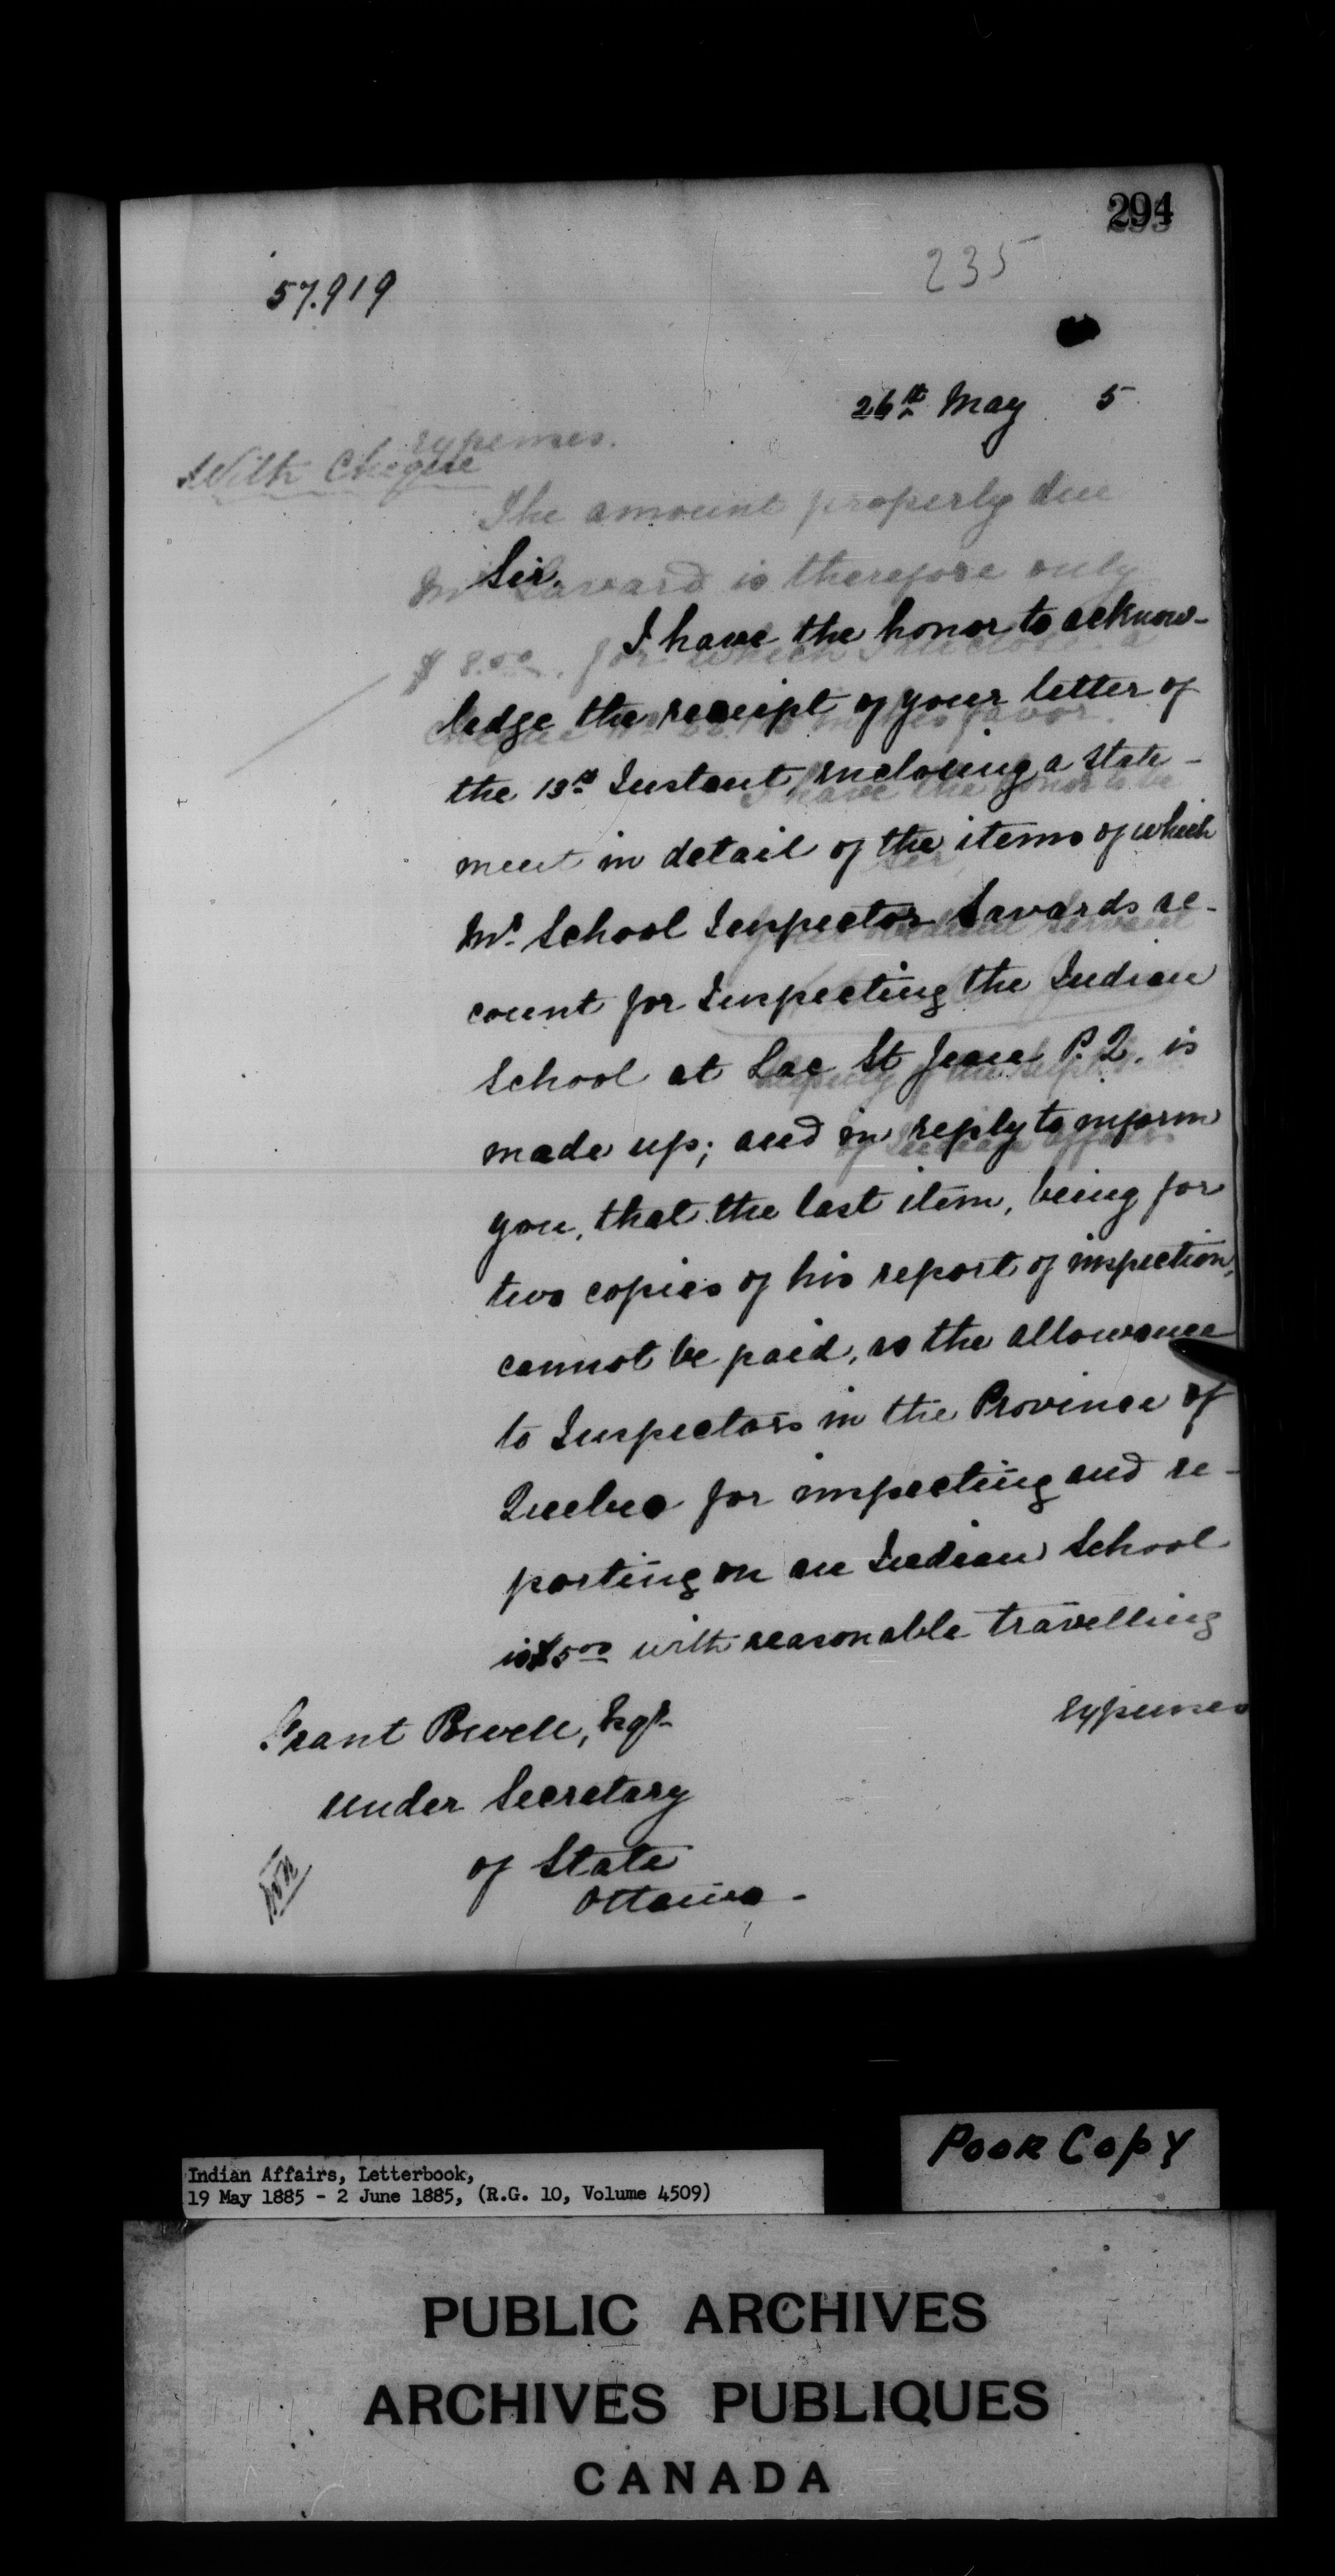 294
235
57.919
26th May 5
With Cheque
expenses.
The amount properly due
Mr Savard is therefore only
$8.00, for which I enclose a
Sir,
I have the honor to acknow-
ledge the receipt of your letter of
the 13th Instant, enclosing a state-
ment in detail of the items of which
Mr School Inspector Savards ac-
count for Inspecting the Indian
School at Lac St Jean P.Q. is
made up; and in reply to inform
you, that the last item, being for
two copies of his report of inspection,
cannot be paid, as the allowance
to Inspectors in the Province of
Quebec for inspecting and re-
porting on an Indian School
is $5.00 with reasonable travelling
expenses
Grant Powell, Esqr
Under Secretary
of State
Ottawa -
POOR COPY
Indian Affairs, Letterbook,
19 May 1885 - 2 June 1885, (R.G. 10, Volume 4509)
PUBLIC ARCHIVES
ARCHIVES PUBLIQUES
CANADA